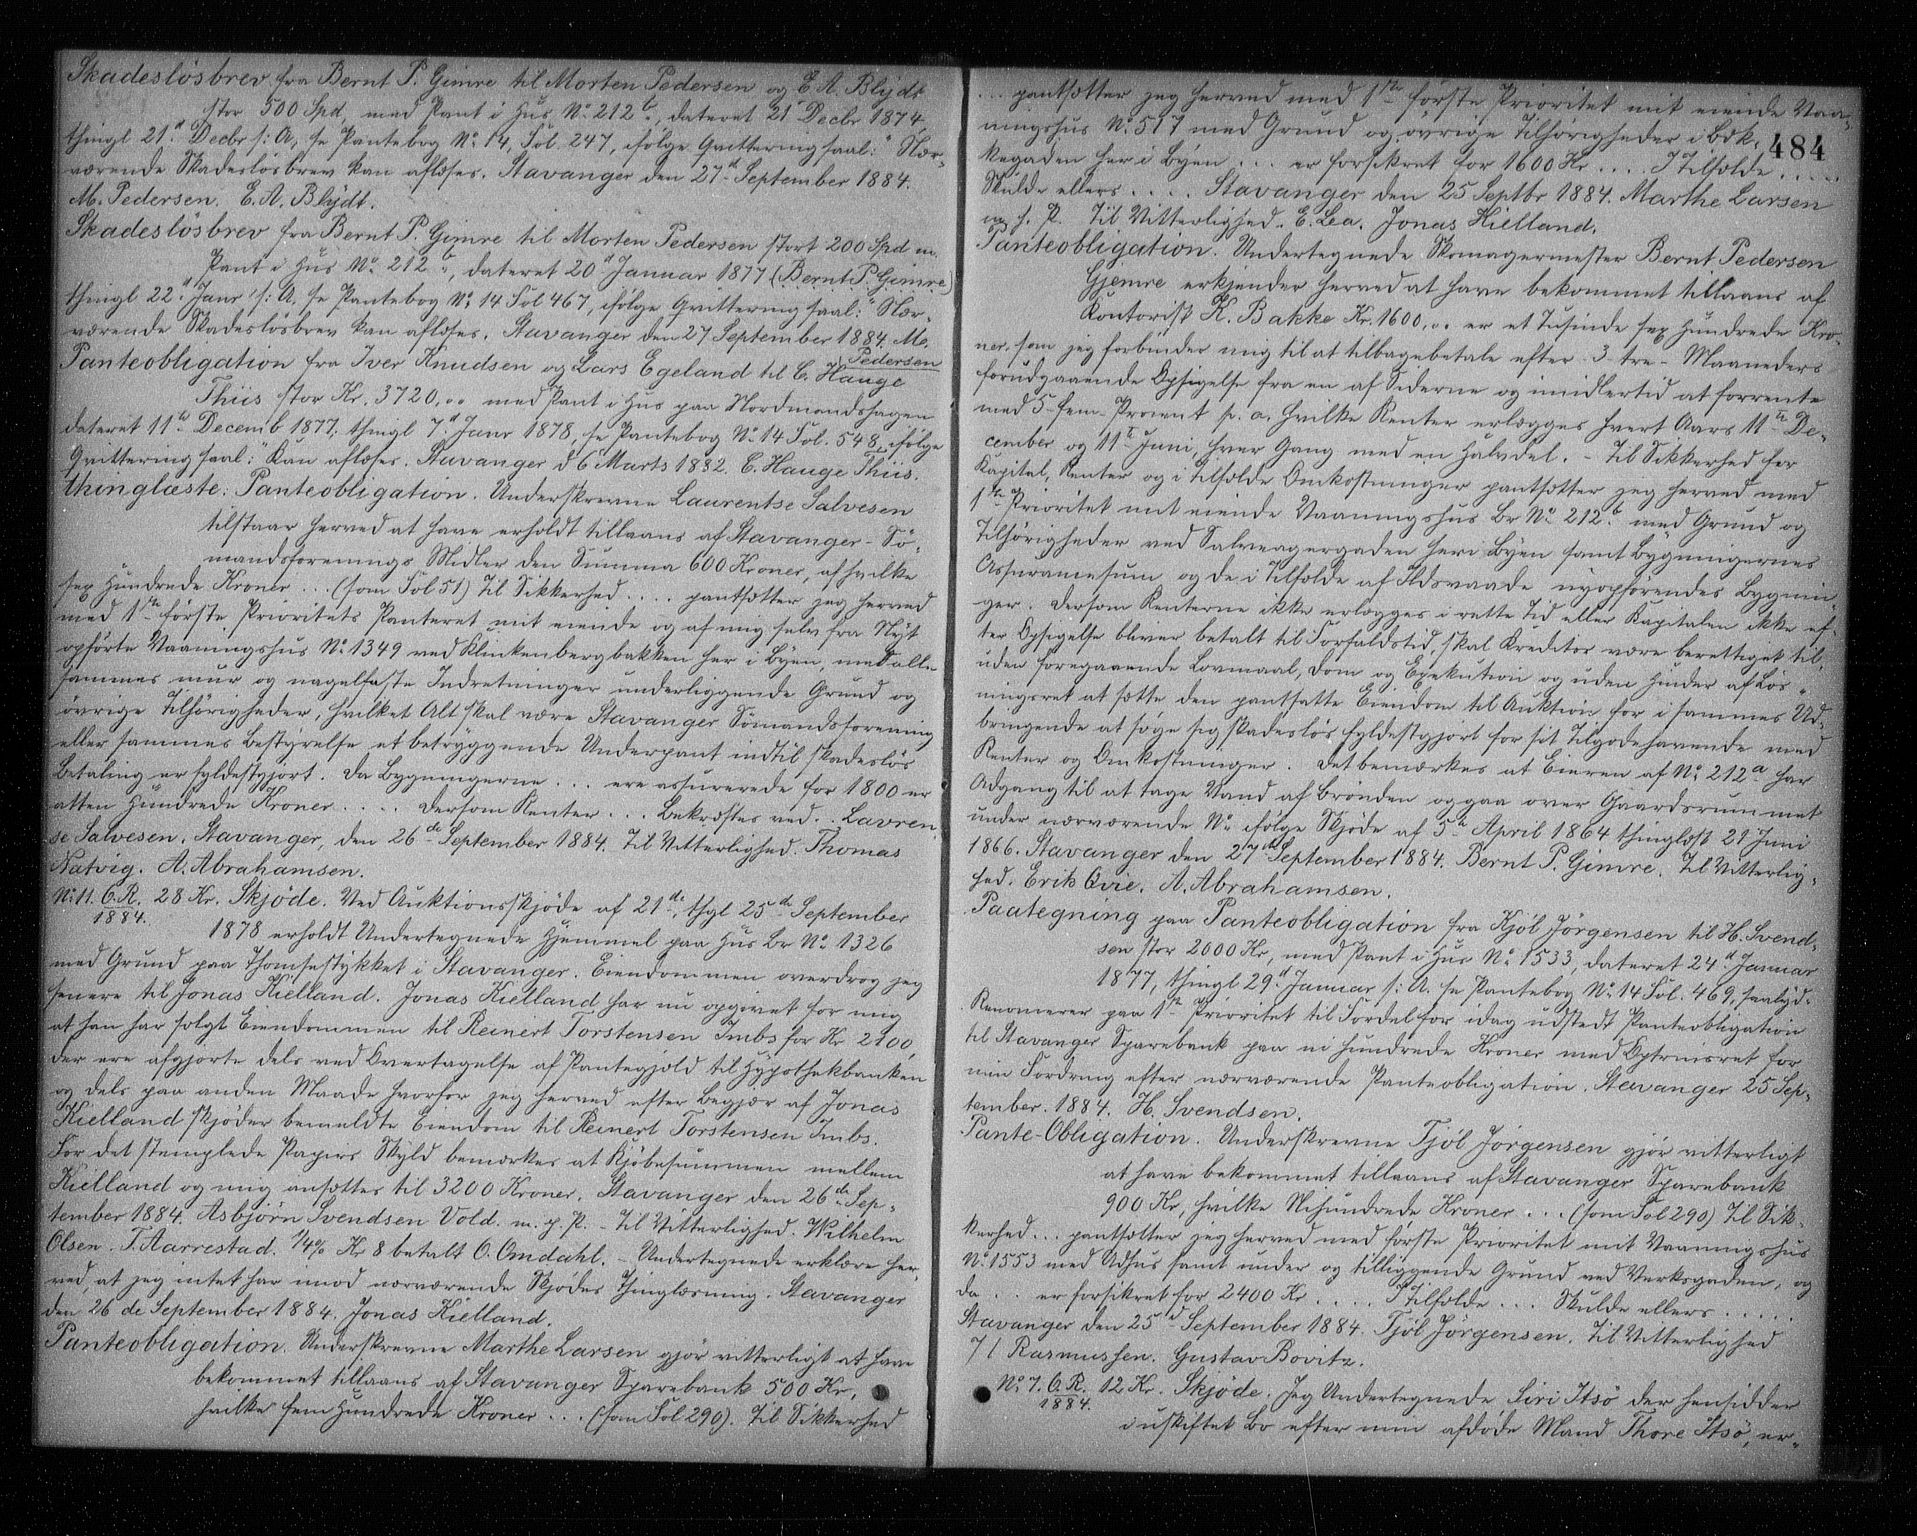 Skadeslösbrev fra Bernt P. Gimre til Morten Pedersen og E. A. Blÿdt
stor 500 Spd, med Pant i Hus No 212b, dateret 21 Decbr 1874,
thingl 21d Decbr s: A, se Pantebog No 14, Fol. 247, ifölge Qvittering saal: "Nær-
værende Skadeslösbrev kan aflæses. Stavanger den 27d September 1884.
M. Pedersen. E. A. Blÿdt.
Skadeslösbrev fra Bernt P. Gimre til Morten Pedersen stort 200 Spd m.
Pant i Hus No 212b, dateret 20d Januar 1877 (Bernt P. Gimre)
thingl 22d Janr s: A, se Pantebog No 14 Fol 467, ifölge Qvittering saal: "Nær-
værende Skadeslösbrev kan aflæses. Stavanger den 27 September 1884. M.
Pedersen
Panteobligation fra Iver Knudsen og Lars Egeland til C. Hauge
Thiis stor Kr. 3720,00 med Pant i Hus paa Nordmandshagen
dateret 11te Decemb 1877, thingl 7d Janr 1878, se Pantebog No 14 Fol. 548, ifölge
Qvittering saal: "Kan aflæses. Stavanger d 6 Marts 1882. C. Hauge Thiis.
thinglæste: Panteobligation. Underskrevne Laurentse Salvesen
tilstaar herved at have erholdt tillaans af Stavanger Sö-
mandsforenings Midler den Summa 600 Kroner, af hvilke
sex Hundrede Kroner ... (som Fol 51) Til Sikkerhed .... pantsætter jeg herved
med 1ste förste Prioritets Panteret mit eiende og af mig selv fra Nÿt
opförte Vaaningshus No 1349 ved Klinkenbergbakken her i Bÿen, med alle
sammes mur og nagelfaste Indretninger underliggende Grund og
övrige Tilhörigheder, hvilket Alt skal være Stavanger Sömandsforening
eller sammes Bestÿrelse et betrÿggende Underpant indtil skadeslös
Betaling er fyldestgjort. Da Bygningerne ... ere assurerede for 1800 er
atten Hundrede Kroner .... Dersom Renter ... Bekræftes ved .. Lavren-
se Salvesen. Stavanger, den 26de September 1884. Til Vitterlighed. Thomas
Natvig. A. Abrahamsen.
No 11. O.R. 28 Kr. Skjöde. Ved Auktionsskjöde af 21de, thgl 25de September
1884. 1878 erholdt Undertegnede Hjemmel paa Hus Br No 1326
med Grund paa Thomsestÿkket i Stavanger. Eiendommen overdrog jeg
senere til Jonas Kielland. Jonas Kielland har nu opgivet for mig
at han har solgt Eiendommen til Reinert Torstensen Imbs for Kr 2100,
der ere afgjorte dels ved Overtagelse af Pantegjæld til Hypothekbanken
og dels paa anden Maade hvorfor jeg herved efter Begjær af Jonas
Kielland skjöder bemeldte Eiendom til Reinert Torstensen Imbs.
For det stemplede Papirs Skyld bemærkes at Kjöbesummen mellem
Kielland og mig ansættes til 3200 Kroner. Stavanger den 26de Sep-
tember 1884. Asbjörn Svendsen Vold. m. p. P. - Til Vitterlighed. Wilhelm
Olsen. T. Aarrestad. 1/4% Kr 8 betalt O. Omdahl. - Undertegnede erklære her-
ved, at jeg intet har imod nærværende Skjödes Thinglæsning. Stavanger
den 26 de September 1884. Jonas Kielland.
Panteobligation. Underskrevne Marthe Larsen gjör vitterligt at have
bekommet tillaans af Stavanger Sparebank 500 Kr,
hvilke fem Hundrede Kroner ... (som Fol 290). Til Sikkerhed
... pantsætter jeg herved med 1ste förste Prioritet mit eiende Vaa-
ningshus No 517 med Grund og övrige Tilhörigheder i Bök-
484
kegaden her i Bÿen ... er forsikret for 1600 Kr .... I Tilfælde ....
Skulde ellers .... Stavanger den 25 Septbr 1884. Marthe Larsen
m. f. P. Til Vitterlighed. E. Lea. Jonas Kielland.
Panteobligation. Undertegnede Skomagermester Bernt Pedersen
Gjemre erkjender herved at have bekommet tillaans af
Kontorist K. Bakke Kr. 1600,00 er et Tusinde sex Hundrede Kro-
ner, som jeg forbinder mig til at tilbagebetale efter 3 - tre - Maaneders
forudgaaende Opsigelse fra en af Siderne og imidlertid at forrente
med 5 - fem - Procent p. a. hvilke Renter erlægges hvert Aars 11te De-
cember og 11te Juni, hver Gang med en Halvdel. - Til Sikkerhed for
Kapital, Renter og i Tilfælde Omkostninger pantsætter jeg herved med
1ste Prioritet mit eiende Vaaningshus Br No 212b med Grund og
Tilhörigheder ved Salveagergaden her i Bÿen samt Bygningernes
Assurancesum og de i Tilfælde af Ildsvaade nyopförendes Bygnin-
ger. Dersom Renterne ikke erlægges i rette Tid eller Kapitalen ikke ef-
ter Opsigelse bliver betalt til Forfaldstid, skal Kreditor være berettiget til
uden foregaaende Lovmaal, Dom og Exekution og uden Hinder af Lös-
ningsret at sætte den pantsatte Eiendom til Auktion for i sammes Ud-
bringende at söge sig skadeslös fyldestgjort for sit Tilgodehavende med
Renter og Omkostninger. Det bemærkes at Eieren af No 212a har
Adgang til at tage Vand af Brönden og gaa over Gaardsrummet
under nærværende No ifölge Skjöde af 5te April 1864 thinglæst 21 Juni
1866. Stavanger den 27de September 1884. Bernt P. Gimre. Til Vitterlig-
hed. Erik Qvie. A. Abrahamsen.
Paategning paa Panteobligation fra Kjöl Jörgensen til H. Svend-
sen stor 2000 Kr, med Pant i Hus No 1533, dateret 24d Januar
1877, thingl 29d Januar s: A. se Pantebog No 14 Fol. 469, saalÿd:
Renoncerer paa 1ste Prioritet til Fordel for idag udstedt Panteobligation
til Stavanger Sparebank paa ni Hundrede Kroner med Optrinsret for
min Fordring efter nærværende Panteobligation. Stavanger 25 Sep-
tember. 1884. H. Svendsen.
Pante-Obligation. Underskrevne Tjöl Jörgensen gjör vitterligt
at have bekommet tillaans af Stavanger Sparebank
900 Kr, hvilke Nihundrede Kroner ... (som Fol 290) Til Sik-
kerhed ... pantsætter jeg herved med förste Prioritet mit Vaaningshus
No 1553 med Udhus samt under og tilliggende Grund ved Verksgaden, og
da ... er forsikret for 2400 Kr .... I Tilfælde ... Skulde ellers .....
Stavanger den 25d September 1884. Tjöl Jörgensen. Til Vitterlighed
Rasmussen. Gustav Bovitz.
No 7. O.R. 12 Kr. Skjöde. Jeg Undertegnede Siri Itsö der hensidder
1884. i uskiftet Bo efter min afdöde Mand Thore Itsö, er-